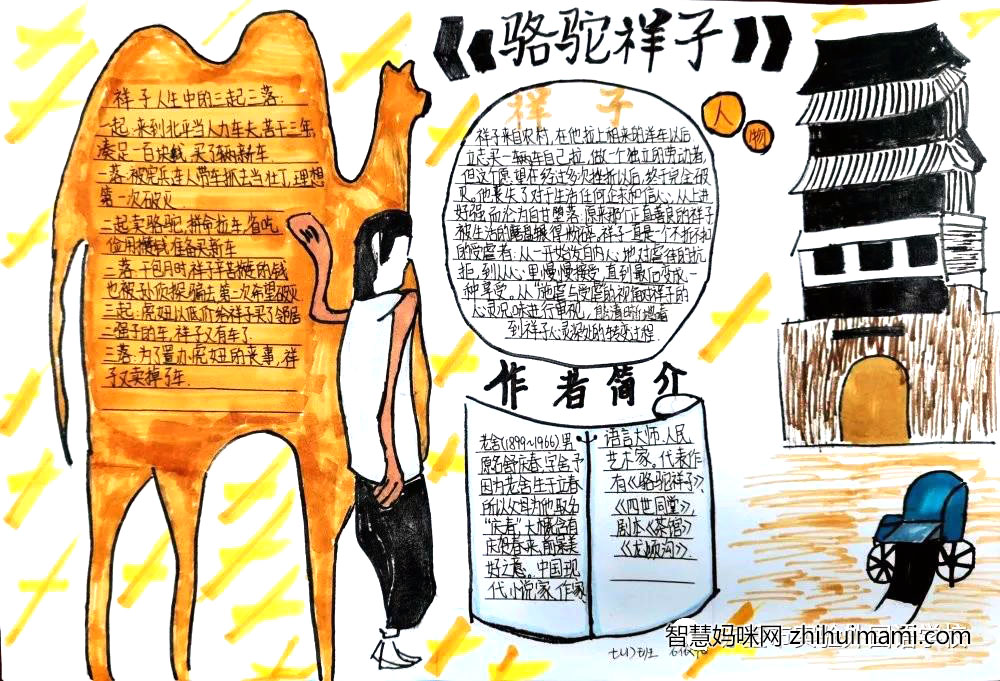 《骆驼祥子》
祥子人生中的三起三落:
一起:来到北平当人力车夫,苦干三年,
凑足一百块钱,买了辆新车.
一落:被宪兵连人带车抓去当壮丁,理想
第一次破灭.
二起:卖骆驼,拼命拉车,省吃
俭用攒钱准备买新车
二落:干包月时,祥子辛苦攒的钱
也被孙侦探骗去,第二次希望破灭.
三起:虎妞以低价给祥子买了邻居
二强子的车,祥子又有车了.
三落:为了置办虎妞的丧事,祥
子又卖掉了车.
祥子
人物
祥子来自农村,在他拉上租来的洋车以后
立志买一辆车自己拉,做一个独立的劳动者
但这个愿望在经过多次挫折以后,终于完全破
灭。他丧失了对于生活任何企求和信心,从上进
好强而沦为自甘堕落:原来那个正直善良的祥子
被生活的磨盘辗得粉碎。祥子一直是个不折不扣
的受虐者:从一开始
拒,到从心里慢慢接受,直到最后变成一
种享受。从"施虐与受虐"的视角对祥子的
心灵
到祥子心灵深处的转变过程.
作者简介
老舍(1899~1966)男
原名舒庆春,字舍予
因为老舍生于立春
所以父母为他取名
"庆春",大概含有
庆贺春来,前景美
好之意。中国现
代小说家,作家
语言大师,人民
艺术家。代表作
有《骆驼祥子》,
《四世同堂》,
剧本《茶馆》
《龙须沟》.
智慧妈咪网 zhihuimami.com